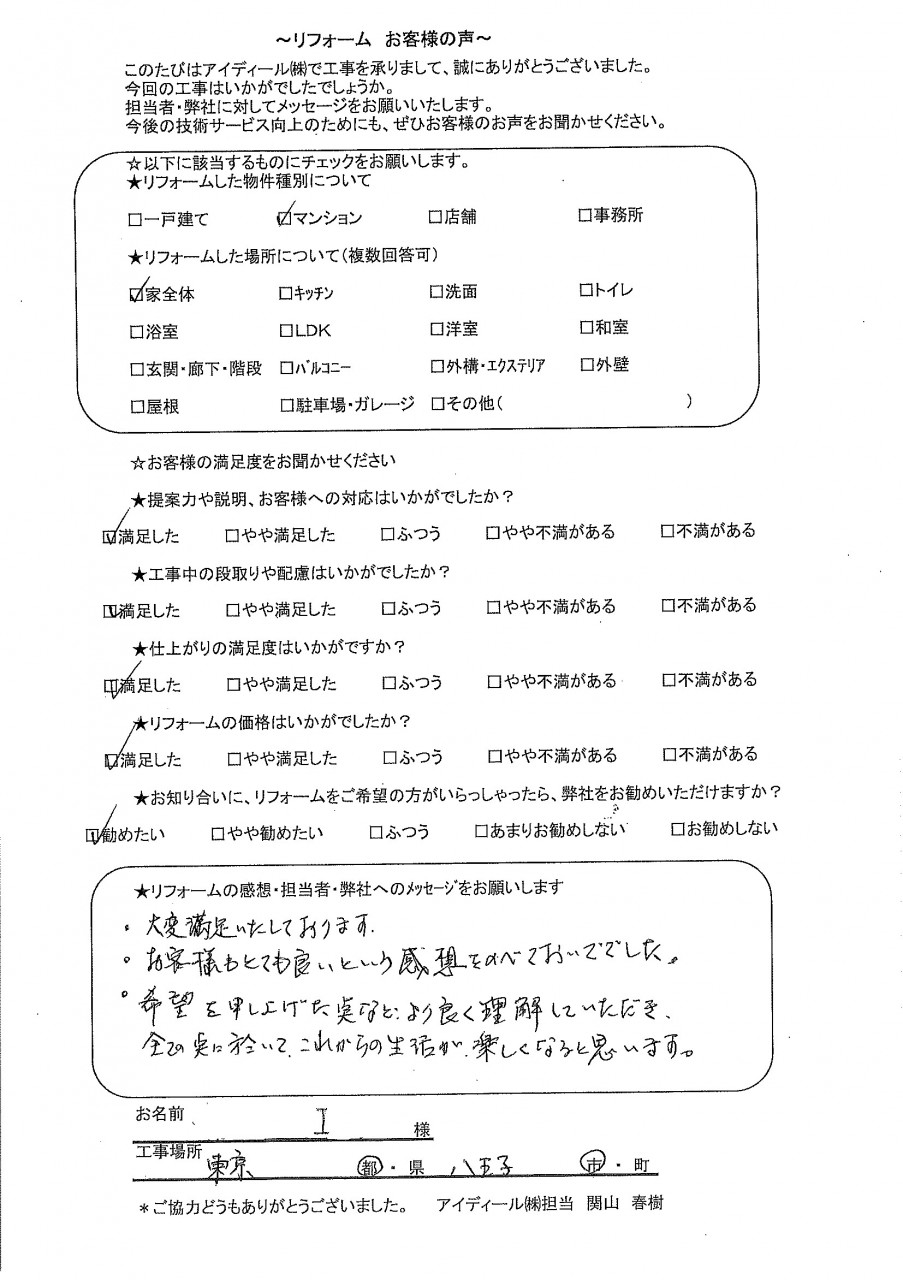 ～リフォーム　お客様の声～
このたびはアイディール㈱で工事を承りまして、誠にありがとうございました。
今回の工事はいかがでしたでしょうか。
担当者・弊社に対してメッセージをお願いいたします。
今後の技術サービス向上のためにも、ぜひお客様のお声をお聞かせください。
☆以下に該当するものにチェックをお願いします。
★リフォームした物件種別について
□一戸建て　☑マンション　□店舗　□事務所
★リフォームした場所について（複数回答可）
☑家全体　□ｷｯﾁﾝ　□洗面　□トイレ
□浴室　□LDK　□洋室　□和室
□玄関・廊下・階段　□ﾊﾞﾙｺﾆｰ　□外構・エクステリア　□外壁
□屋根　□駐車場・ガレージ　□その他（　　　）
☆お客様の満足度をお聞かせください
★提案力や説明、お客様への対応はいかがでしたか？
☑満足した　□やや満足した　□ふつう　□やや不満がある　□不満がある
★工事中の段取りや配慮はいかがでしたか？
☑満足した　□やや満足した　□ふつう　□やや不満がある　□不満がある
★仕上がりの満足度はいかがですか？
☑満足した　□やや満足した　□ふつう　□やや不満がある　□不満がある
★リフォームの価格はいかがでしたか？
☑満足した　□やや満足した　□ふつう　□やや不満がある　□不満がある
★お知り合いに、リフォームをご希望の方がいらっしゃったら、弊社をお勧めいただけますか？
☑勧めたい　□やや勧めたい　□ふつう　□あまりお勧めしない　□お勧めしない
★リフォームの感想・担当者・弊社へのﾒｯｾｰｼﾞをお願いします
・大変満足いたしております.
・お客様もとても良いという感想をのべておいででした。
・希望を申し上げた実など、より良く理解していただき、
全ての実に於いて、これからの生活が、楽しくなると思います。
お名前　I　様
工事場所　東京　都・県　八王子　市・町
＊ご協力どうもありがとうございました。　アイディール㈱担当　関山　春樹